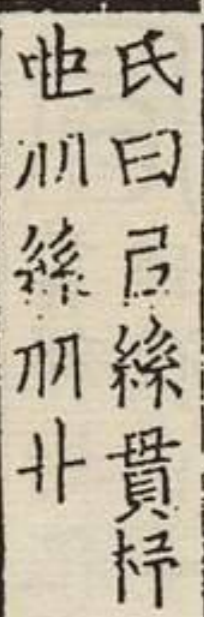 氏曰㠯絲貫杼
也从絲从卝